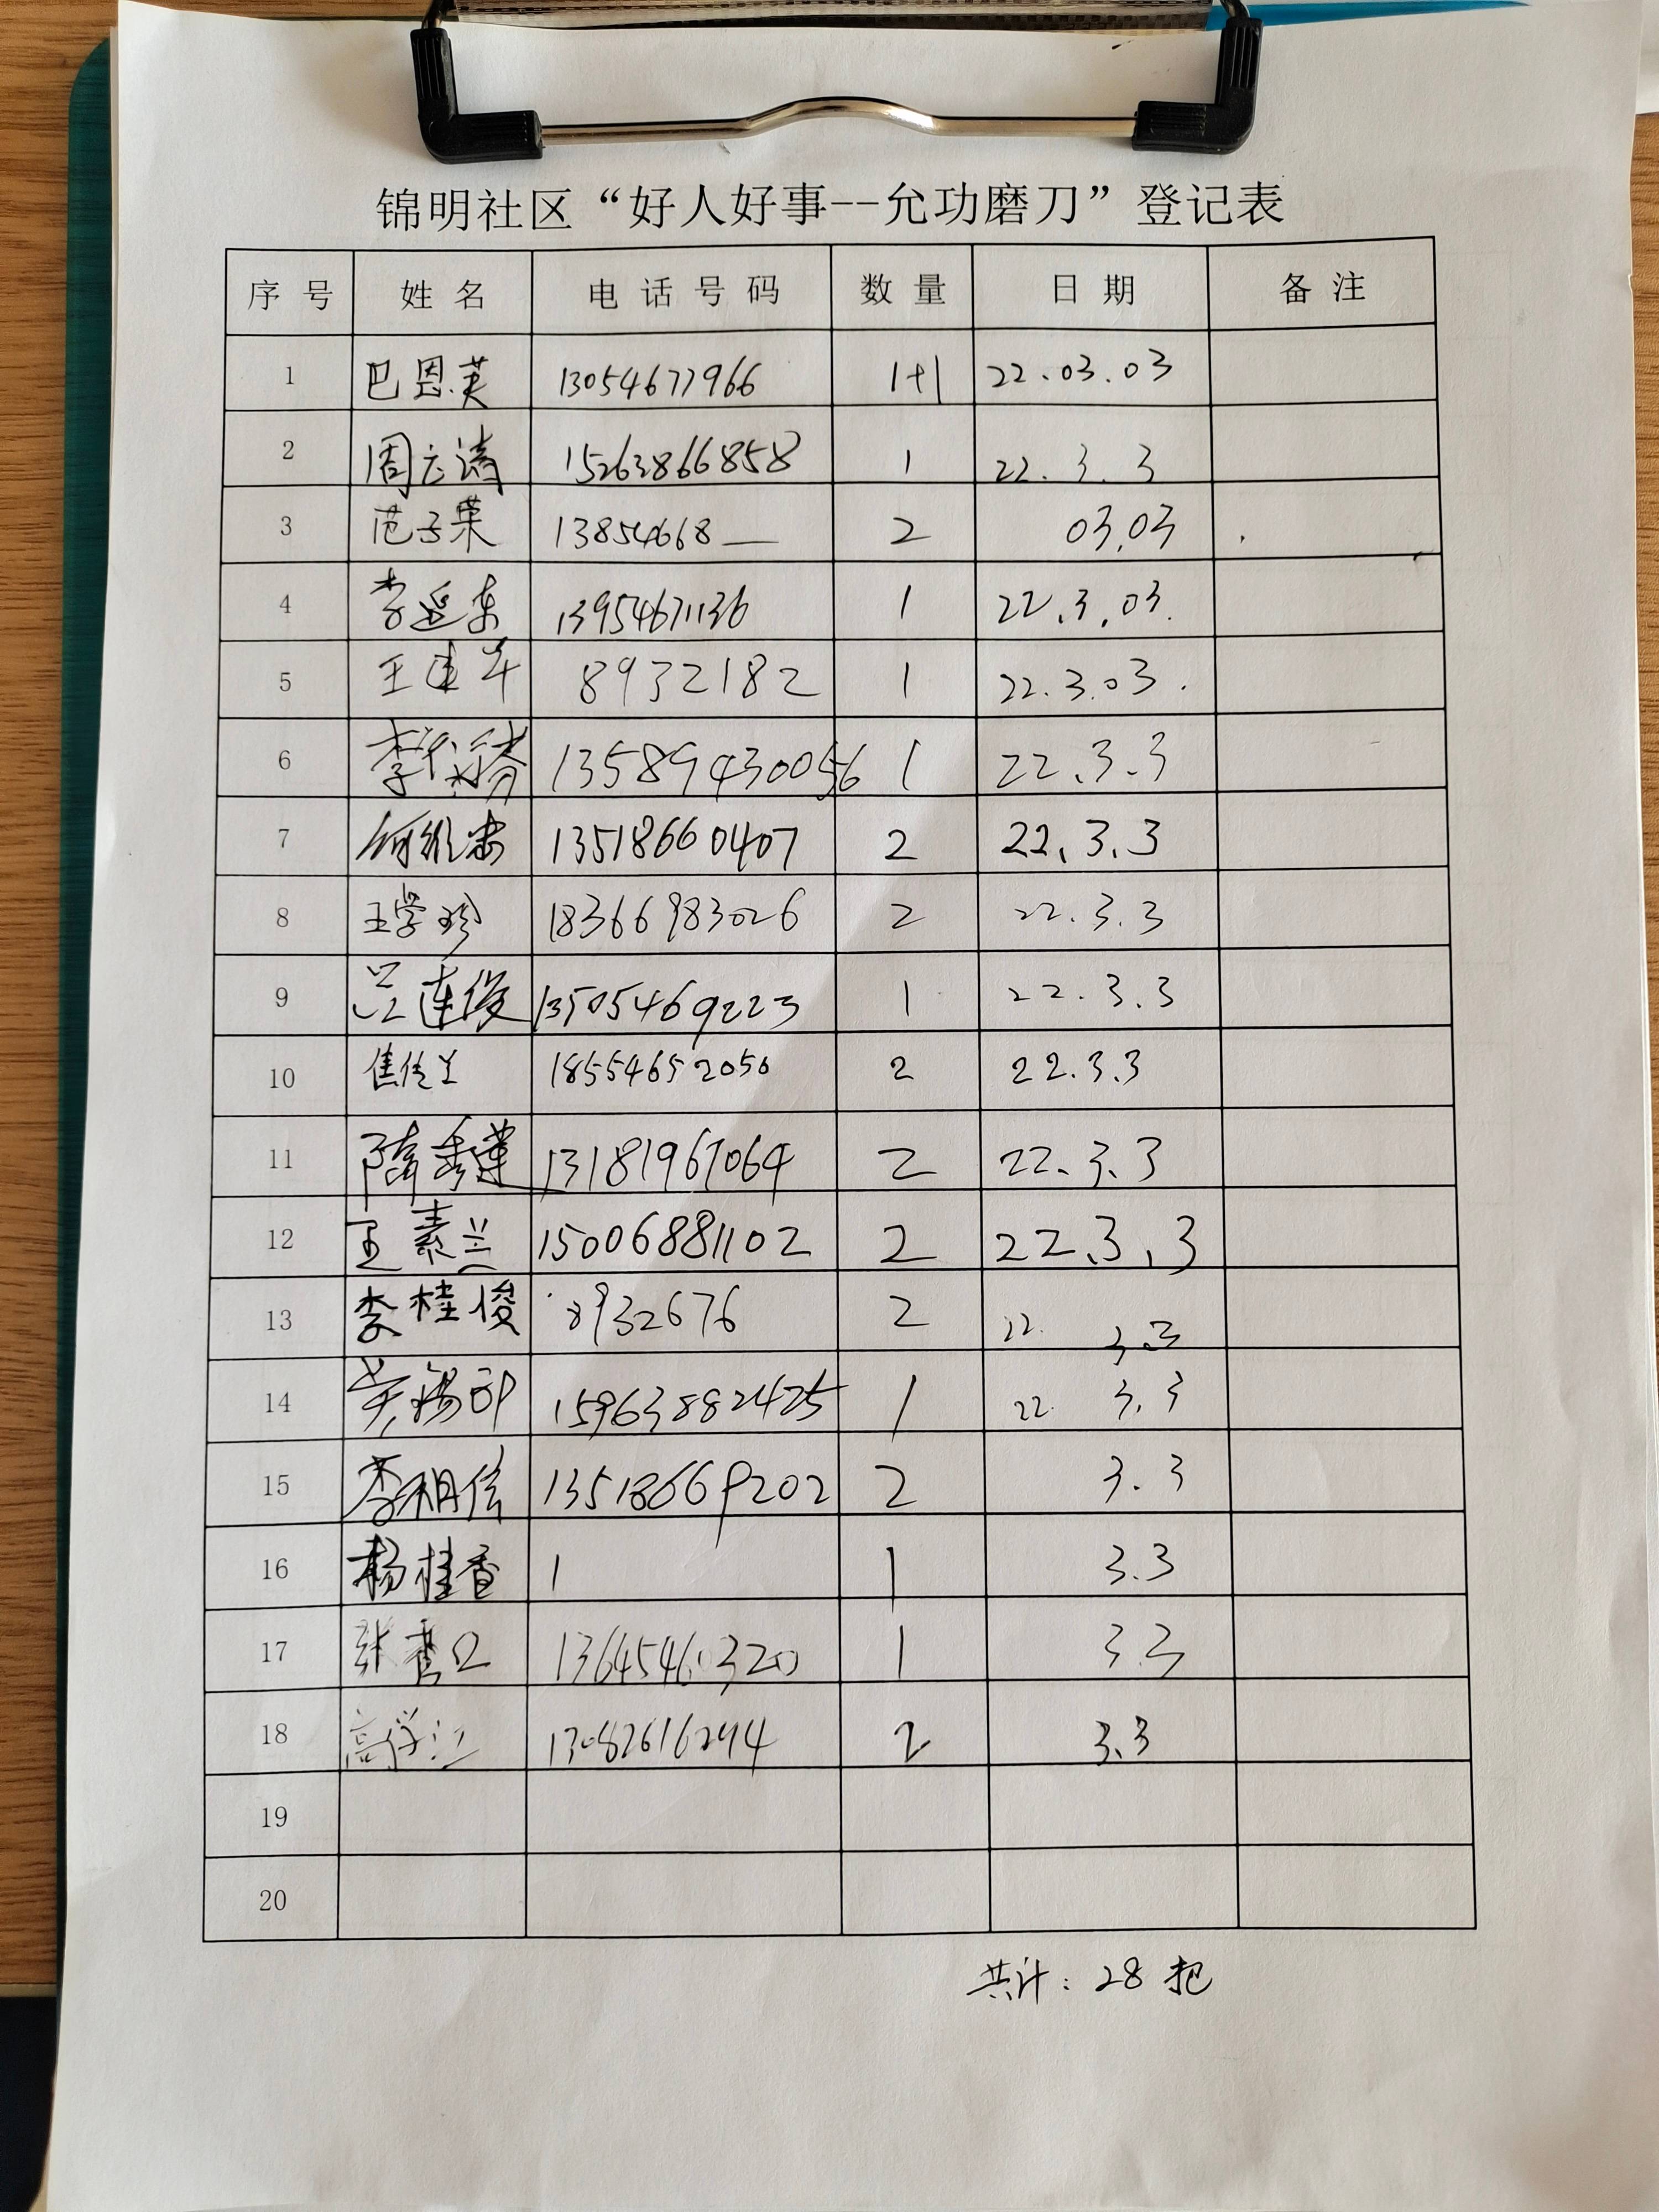 锦明社区“好人好事--允功磨刀”登记表
序号 姓名 电话号码 数量 日期 备注
1 巴恩英 13054677966 1+1 22.03.03
2 周云清 15263866858 1 22.3.3
3 范子荣 13854668— 2 03.03
4 李延东 13954671136 1 22.3.03.
5 王建华 8932182 1 22.3.03.
6 李 13589430056 1 22.3.3
7 何维忠 13518660407 2 22.3.3
8 王学珍 18366983026 2 22.3.3
9 吕连俊 13505469223 1 22.3.3
10 焦传兰 18554652050 2 22.3.3
11 隋秀莲 13181967064 2 22.3.3
12 王素兰 15006881102 2 22.3.3
13 李桂俊 8932676 2 22. 3.3
14 159638882425 1 22. 3.3
15 李相信 13518669202 2 3.3
16 杨桂香 1 1 3.3
17 张 1 3.3
18 高学江 13082616294 2 3.3
19
20
共计：28把